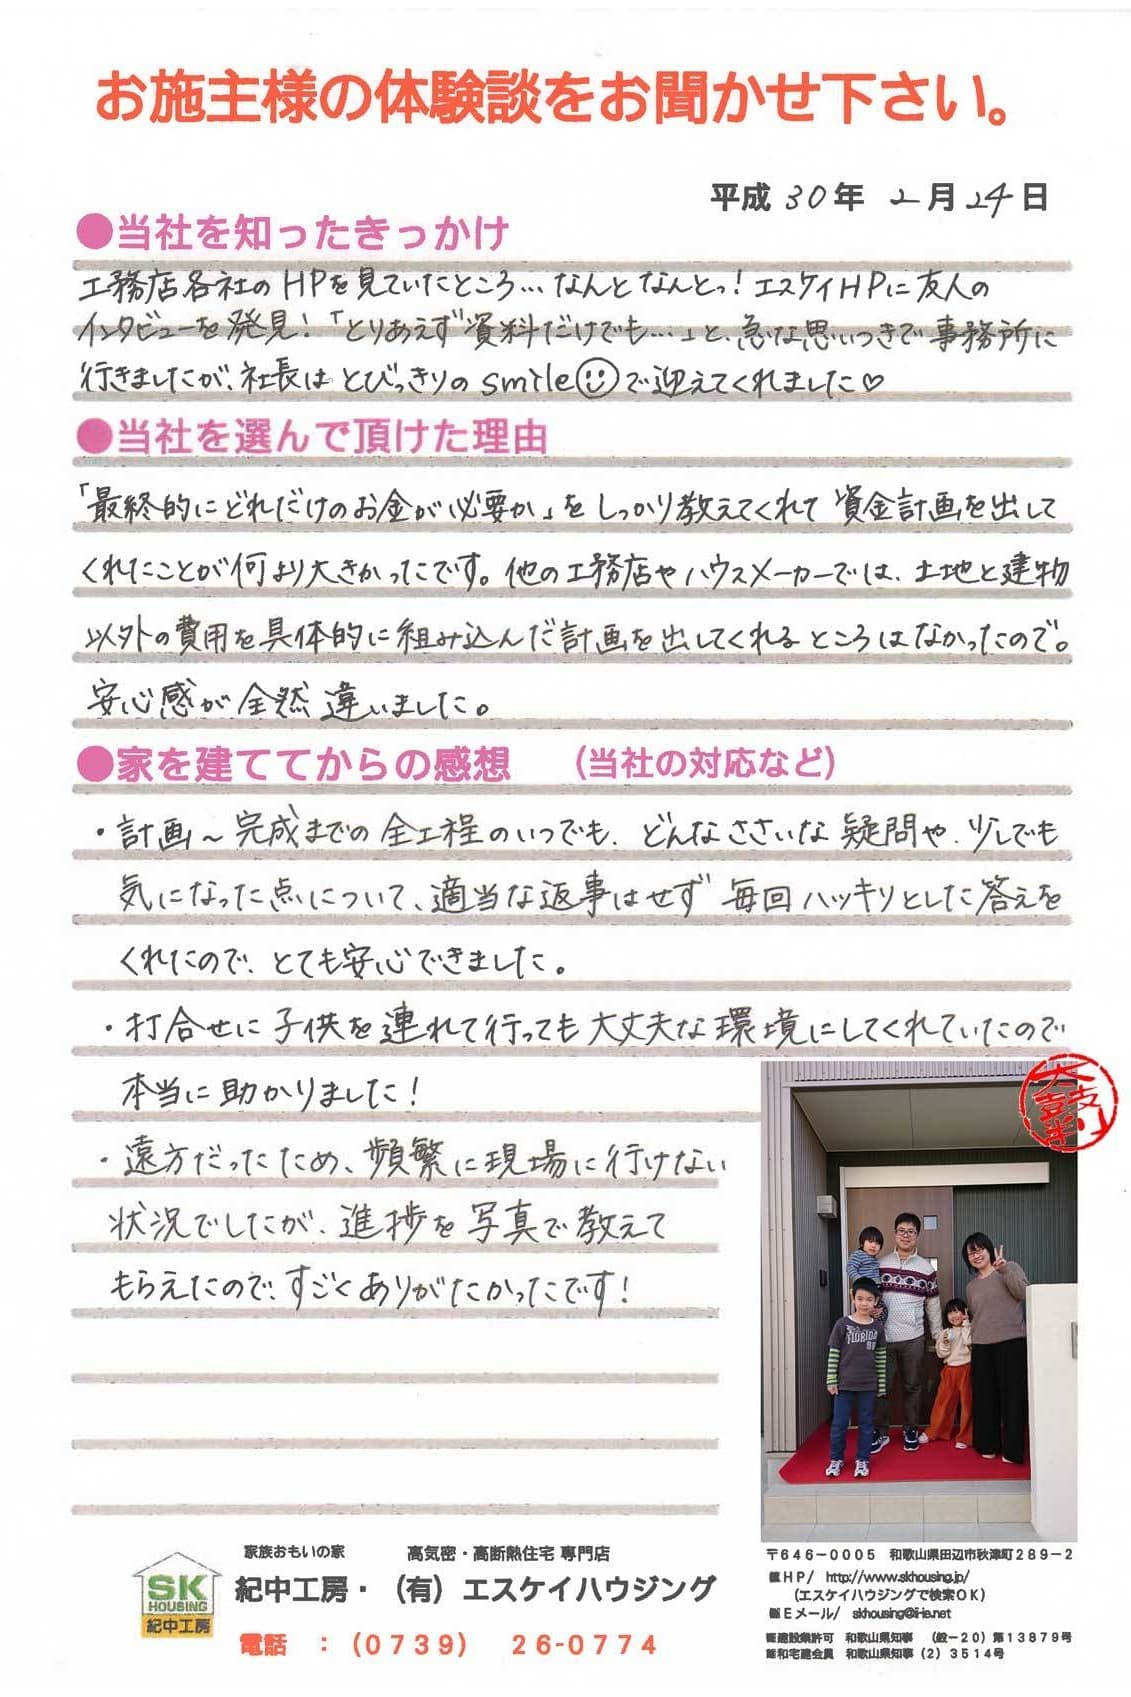 お施主様の体験談をお聞かせ下さい。
平成 30年 2月 24日
●当社を知ったきっかけ
工務店各社のHPを見ていたところ…なんとなんとっ!エスケイHPに友人の
インタビューを発見!「とりあえず資料だけでも…」と、急な思いつきで事務所に
行きましたが、社長はとびっきりのsmile☺で迎えてくれました♡
●当社を選んで頂けた理由
「最終的にどれだけのお金が必要か」をしっかり教えてくれて資金計画を出して
くれたことが何より大きかったです。他の工務店やハウスメーカーでは、土地と建物
以外の費用を具体的に組み込んだ計画を出してくれるところはなかったので。
安心感が全然違いました。
●家を建ててからの感想 (当社の対応など)
・計画~完成までの全工程のいつでも、どんなささいな疑問や、少しでも
気になった点について、適当な返事はせず毎回ハッキリとした答えを
くれたので、とても安心できました。
・打合せに子供を連れて行っても大丈夫な環境にしてくれていたので
本当に助かりました!
・遠方だったため、頻繁に現場に行けない
状況でしたが、進捗を写真で教えて
もらえたので、すごくありがたかったです!
FLORIDA
SK
HOUSING
紀中工房
家族おもいの家 高気密・高断熱住宅 専門店
紀中工房・(有)エスケイハウジング
電話 :(0739) 26-0774
〒646-0005 和歌山県田辺市秋津町289-2
HP/ http://www.skhousing.jp/
(エスケイハウジングで検索OK)
Eメール/ skhousing@ii-ie.net
建設業許可 和歌山県知事 (般-20)第13879号
和宅建会員 和歌山県知事(2)3514号